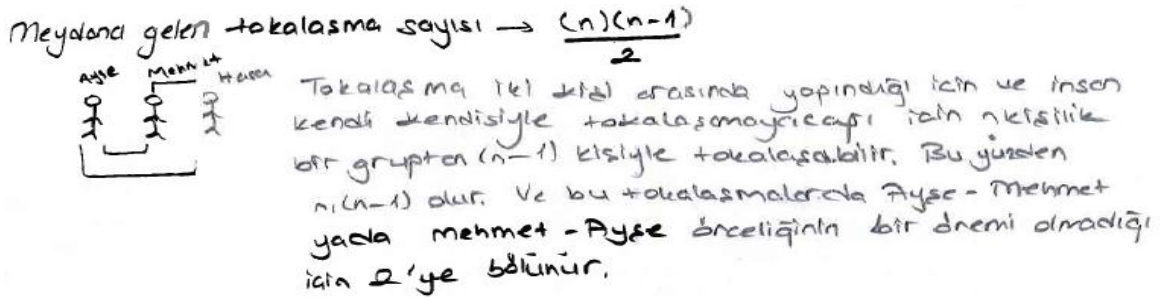 Meydana gelen tokalasma sayısı → (n)(n-1)
2
Ayse Mehmet Hasan
Tokalaşma iki kişi arasında yapındığı için ve insan
kendi kendisiyle tokalaşamayacağı için n kişilik
bir gruptan (n-1) kişiyle tokalaşabilir. Bu yüzden
n.(n-1) olur. Ve bu tokalaşmalarda Ayşe - Mehmet
yada mehmet - Ayşe önceliğinin bir önemi olmadığı
için 2'ye bölünür.